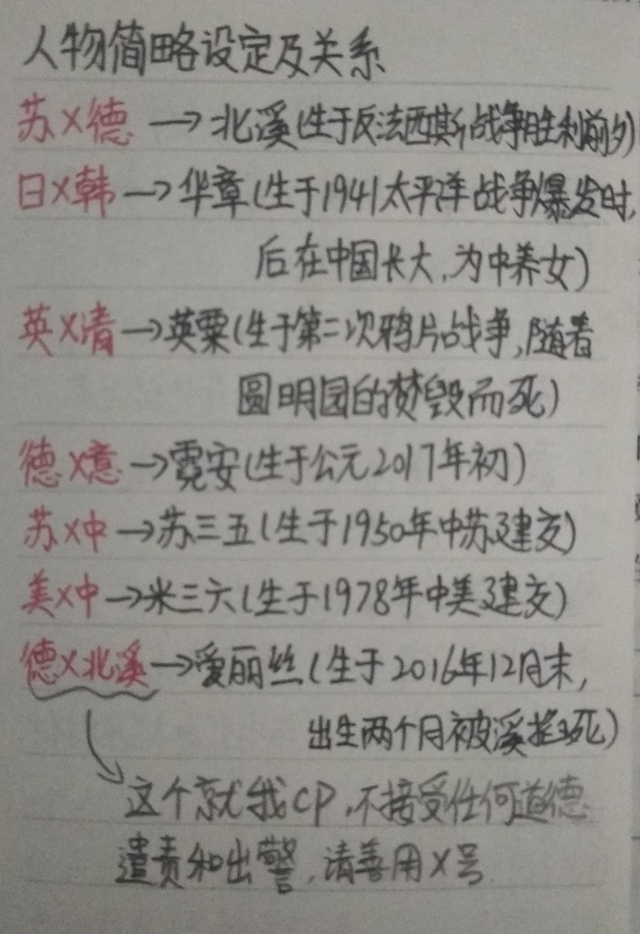 人物简略设定及关系
苏X德→北溪(生于反法西斯战争胜利前夕)
日X韩→华章(生于1941太平洋战争爆发时,
后在中国长大,为中养女)
英X清→英粟(生于第二次鸦片战争,随着
圆明园的焚毁而死)
德X意→霓安(生于公元2017年初)
苏X中→苏三五(生于1950年中苏建交)
美X中→米三六(生于1978年中美建交)
德X北溪→爱丽丝(生于2016年12月末,
出生两个月被溪掐死)
这个就我CP,不接受任何道德
谴责和出警,请善用X号